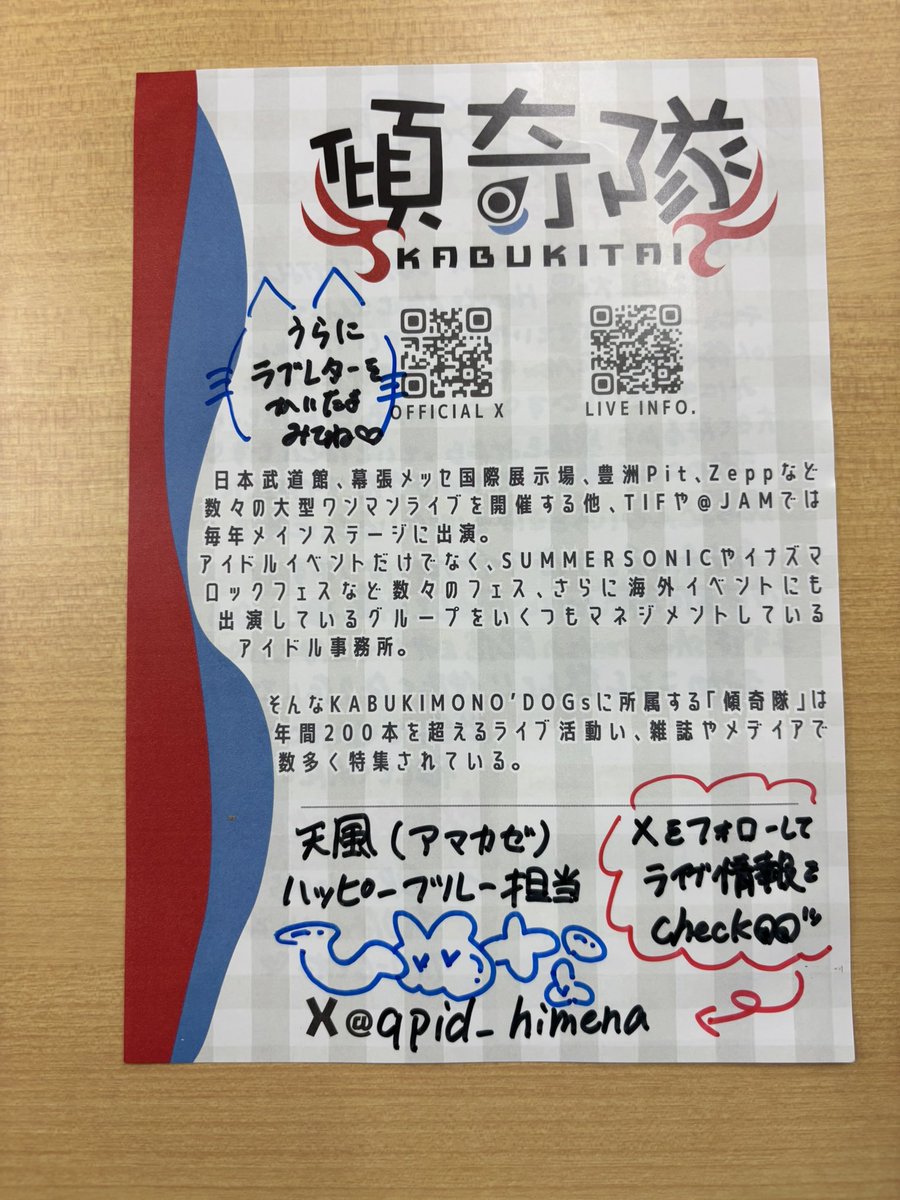 傾奇隊
KABUKITAI
うらに
ラブレターを
かいたよ
みてね♡
OFFICIAL X
LIVE INFO.
日本武道館、幕張メッセ国際展示場、豊洲Pit、Zeppなど
数々の大型ワンマンライブを開催する他、TIFや@JAMでは
毎年メインステージに出演。
アイドルイベントだけでなく、SUMMERSONICやイナズマ
ロックフェスなど数々のフェス、さらに海外イベントにも
出演しているグループをいくつもマネジメントしている
アイドル事務所。
そんなKABUKIMONO'DOGsに所属する「傾奇隊」は
年間200本を超えるライブ活動い、雑誌やメディアで
数多く特集されている。
天風(アマカゼ)
ハッピーブルー担当
X@qpid_himena
Xをフォローして
ライブ情報を
check